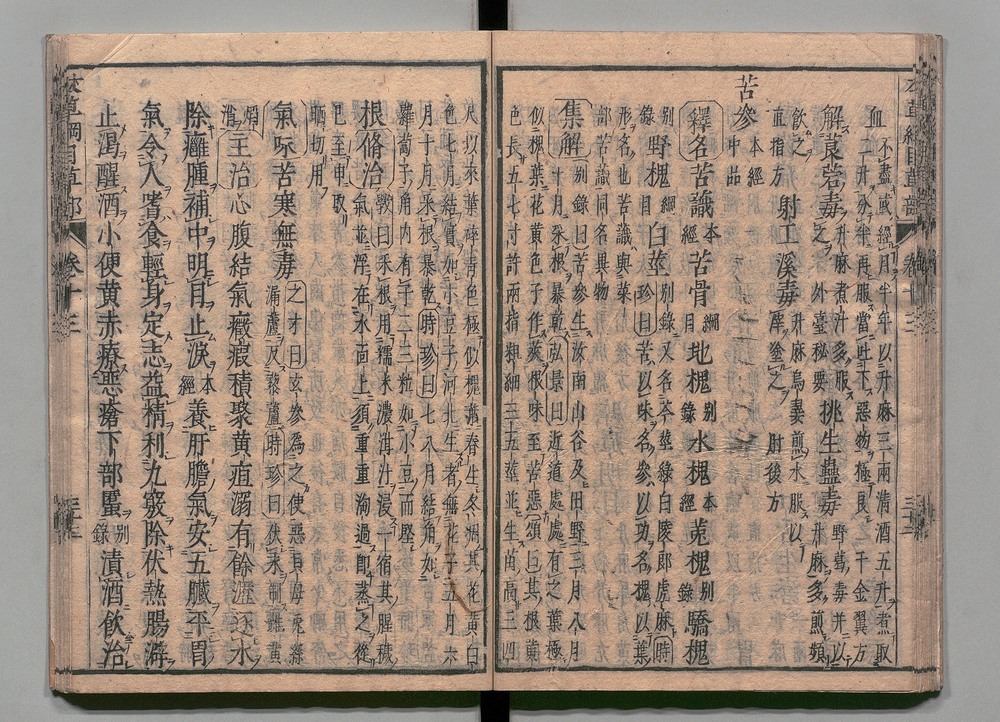 血不盡或經月半年以升麻三兩清酒五升煮取
二升分半再服當吐下惡物極良千金翼方
解莨菪毒升麻煮汁多服之外臺秘要挑生蠱毒野葛毒并以升麻多煎頻
飲之直指方射工溪毒升麻烏翣煎水服以滓塗之肘後方
苦參本經中品
釋名苦識本經苦骨綱目地槐別錄水槐本經菟槐別錄驕槐
別錄野槐綱目白莖別錄又芩莖綠白陵郎虎麻時
珍曰苦以味名參以功名槐以葉
形名也苦識與菜
部苦識同名異物
集解別錄曰苦參生汝南山谷及田野三月八月
十月采根暴乾弘景曰近道處處有之葉極
似槐葉花黃色子作莢根味至苦惡頌曰其根黃
色長五七寸許兩指粗細三五莖並生苗高三四
尺以來葉碎青色極似槐葉春生冬凋其花黃白
色七月結實如小豆子河北生者無花子五月六
月十月采根暴乾時珍曰七八月結角如
蘿蔔子角內有子二三粒如小豆而堅
根脩治斅曰采根用糯米濃泔汁浸一宿其腥穢
氣並浮在水面上須重重淘過即蒸之從
巳至申取
晒切用
氣味苦寒無毒之才曰玄參為之使惡貝母菟絲
漏蘆反藜蘆時珍曰伏汞制雌黃
焰消主治心腹結氣癥瘕積聚黃疸溺有餘瀝逐水
除癰腫補中明目止淚本經養肝膽氣安五臟平胃
氣令人嗜食輕身定志益精利九竅除伏熱腸澼
止渴醒酒小便黃赤療惡瘡下部䘌別錄漬酒飲治